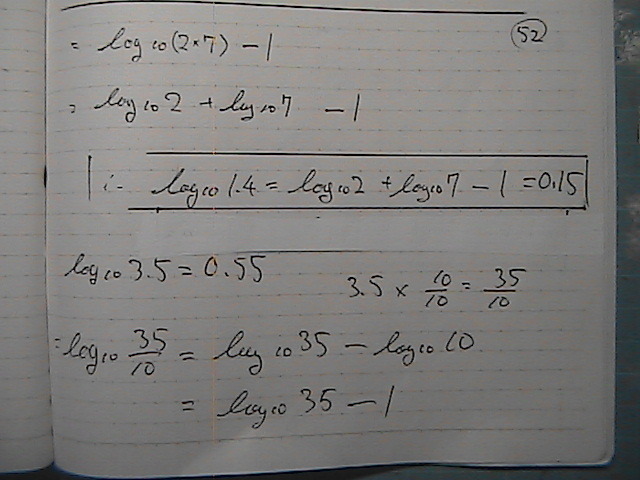 52
= log₁₀(2×7) - 1
= log₁₀2 + log₁₀7 - 1
log₁₀1.4 = log₁₀2 + log₁₀7 - 1 = 0.15
log₁₀3.5 = 0.55
3.5 × 10/10 = 35/10
= log₁₀ 35/10 = log₁₀35 - log₁₀10
= log₁₀35 - 1